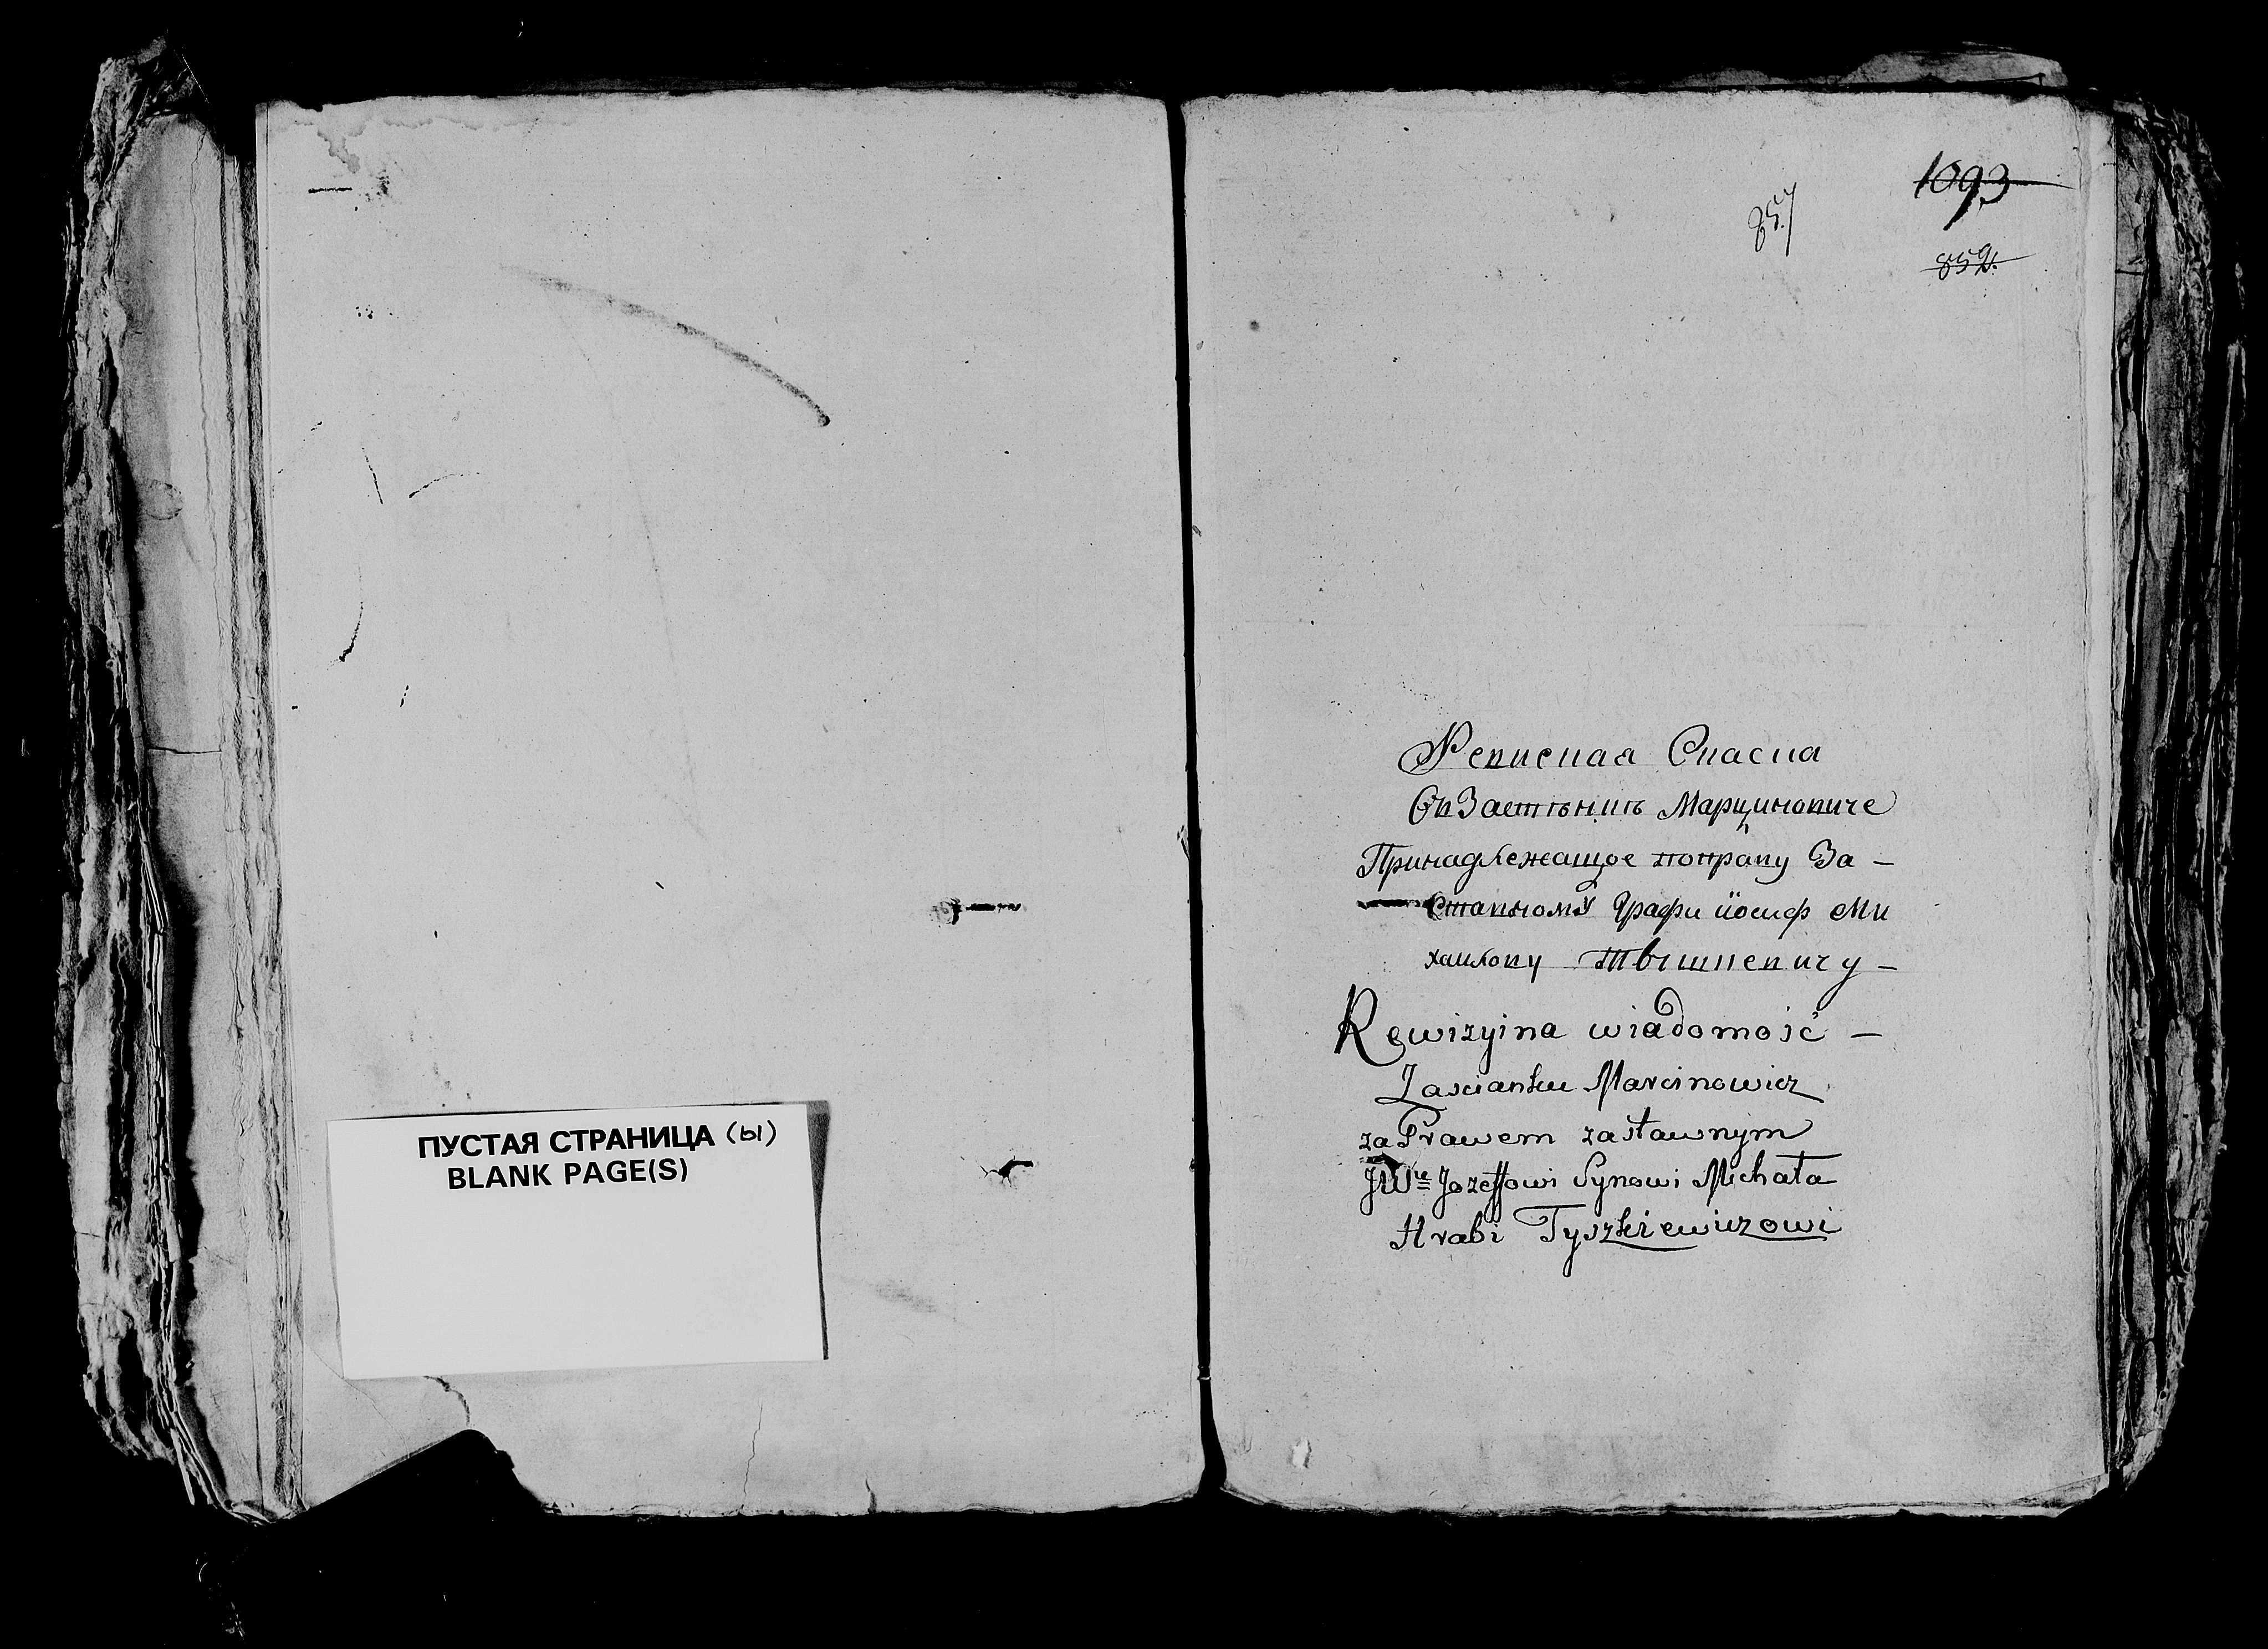 ПУСТАЯ СТРАНИЦА (ы)
BLANK PAGE(S)
1093
857
852.
Ревисная Сказка
Принадлежащое поправу За –
Ставному Графи іосиф Ми
хаилову Тышкевичу –
Rewizyina wiadomość –
Zascianku Marcinowicz
za Prawem zastawnym
JWu Jozeffowi Synowi Michała
Hrabi Tyszkiewiczowi